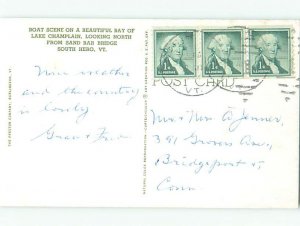 BOAT SCENE ON A BEAUTIFUL BAY OF
LAKE CHAMPLAIN, LOOKING NORTH
FROM SAND BAR BRIDGE
SOUTH HERO, VT.
1¢ 1¢ 1¢
U.S. POSTAGE U.S. POSTAGE U.S. POSTAGE
POST CARD
VT.
Nice weather
and the country
is lovely
Grace + Fred
Mr + Mrs A Jenner,
391 Grovers Ave
Bridgeport
Conn